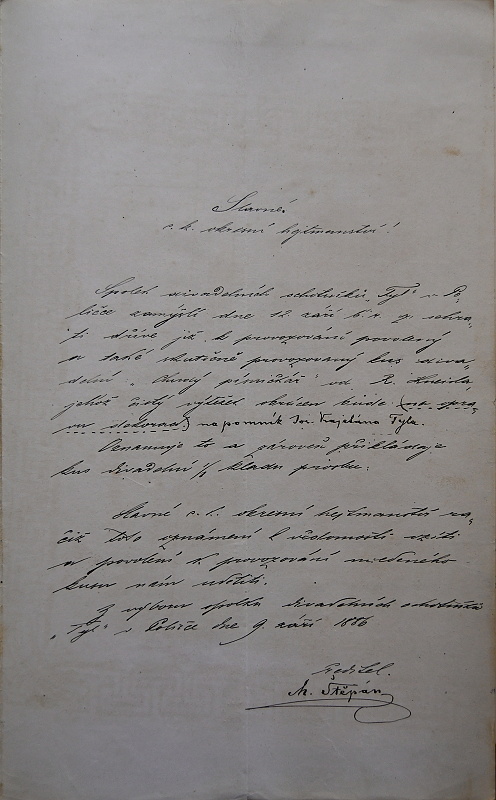 Slavné
c. k. okresní hejtmanství!
Spolek divadelních ochotníků „Tyl“ v Po-
ličce zamýšlí dne 12. září t. r.
ti dříve již k provozování povolený
a také skutečně provozovaný kus diva-
delní „Chudý písničkář“ od
jehož čistý výtěžek obrácen bude (na opra-
vu dekorací) na pomník Jos. Kajetána Tyla.
Oznamuje to a zároveň přikládaje
kus divadelní kladu prosbu:
Slavné c. k. okresní hejtmanství ra-
čiž toto oznámení k vědomosti vzíti
a povolení k provozování uvedeného
kusu nám uděliti.
Z výboru spolku divadelních ochotníků
„Tyl“ v Poličce dne 9. září 1886
ředitel.
M. Štěpán